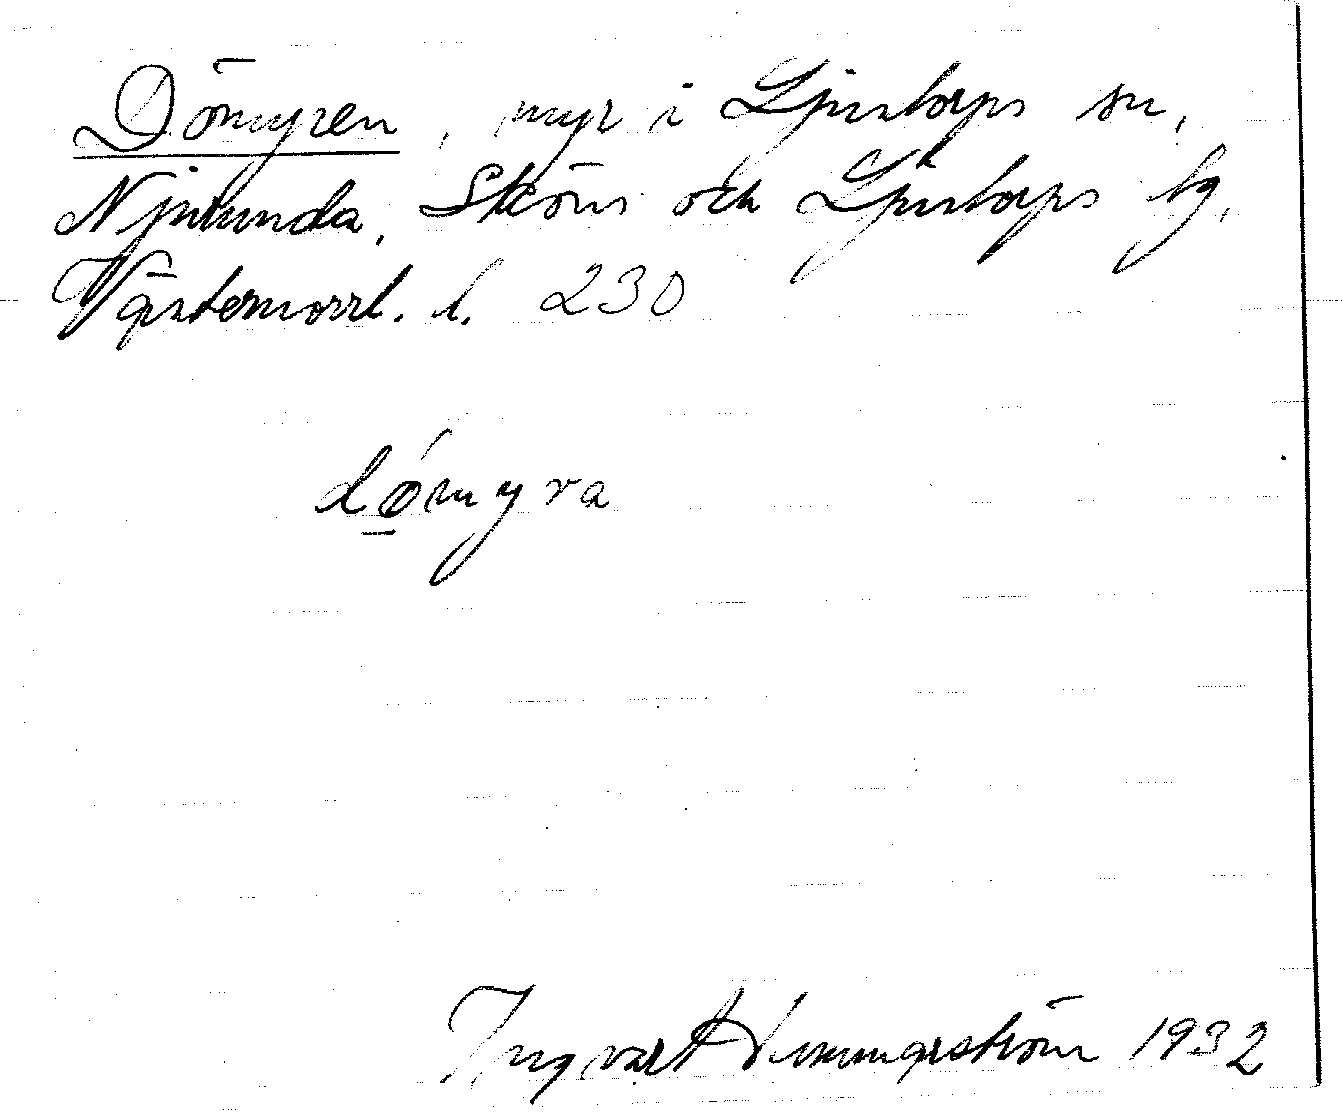 Dömyren, myr i Ljustorps sn,
Njurunda, Sköns och Ljustorps tg,
Västernorrl. l. 230
dómyra
Ingvart 1932